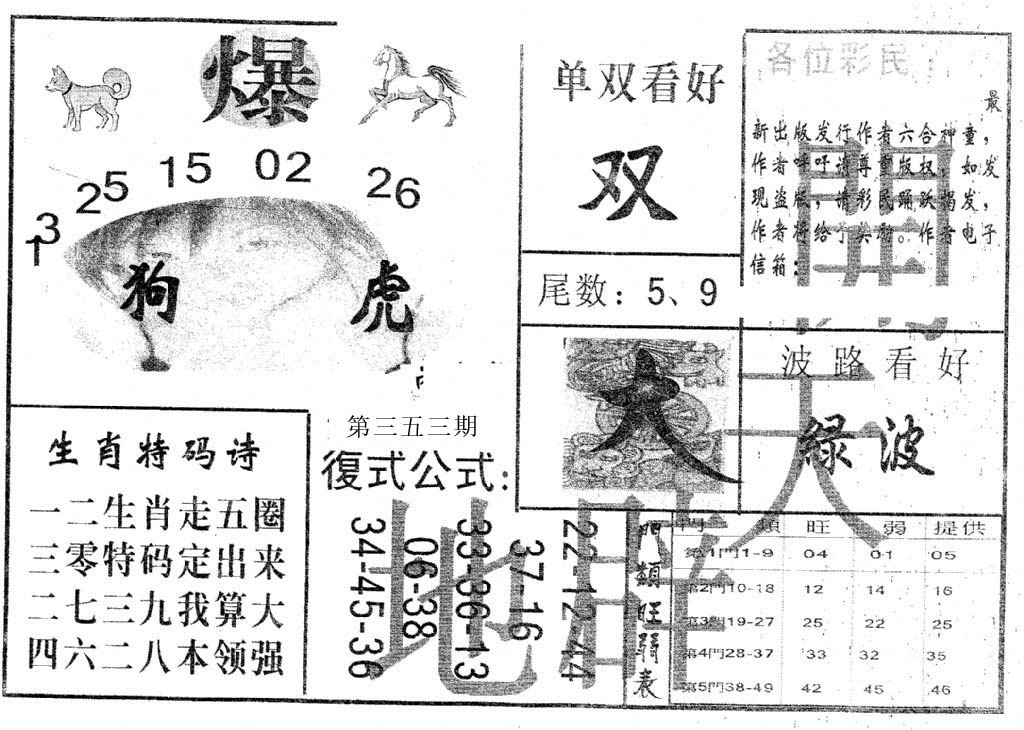 爆
13
25
15
02
26
狗
虎
单双看好
双
各位彩民：
最
新出版发行作者六合神童，
作者呼吁请尊重版权，如发
现盗版，请彩民踊跃揭发，
作者将给予奖励。作者电子
信箱：
開
尾数：5、9
大
波路看好
緑波
天
生肖特码诗
一二生肖走五圈
三零特码定出来
二七三九我算大
四六二八本领强
第三五三期
復式公式：
34-45-36
06-38
33-36-13
37-16
22-12-44
地
門類旺弱表
門類 旺 弱 提供
第1門1-9 04 01 05
第2門10-18 12 14 16
第3門19-27 25 22 25
第4門28-37 33 32 35
第5門38-49 42 45 46